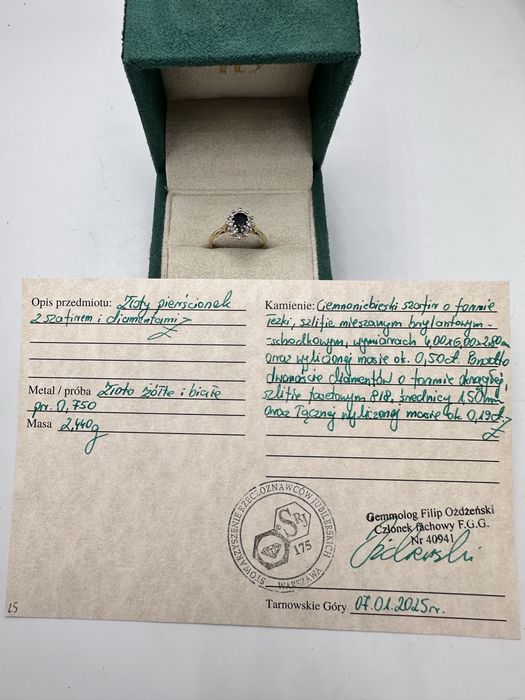 Opis przedmiotu: Złoty pierścionek
z szafirem i diamentami
Metal / próba Złoto żółte i białe
pr. 0,750
Masa 2,440g
Kamienie: Ciemnoniebieski szafir o formie
łezki, szlifie mieszanym brylantowym-
-schodkowym, wymiarach 4,00x6,00x2,80mm
oraz wyliczonej masie ok. 0,50ct. Ponadto
dwanaście diamentów o formie okrągłej,
szlifie fasetowym 8/8, średnicy 1,50mm
oraz łącznej wyliczonej masie ok. 0,19ct.
STOWARZYSZENIE RZECZOZNAWCÓW JUBILERSKICH
SRJ
175
WARSZAWA
Gemmolog Filip Ożdżeński
Członek fachowy F.G.G.
Nr 40941
Tarnowskie Góry 07.01.2025r.
LS